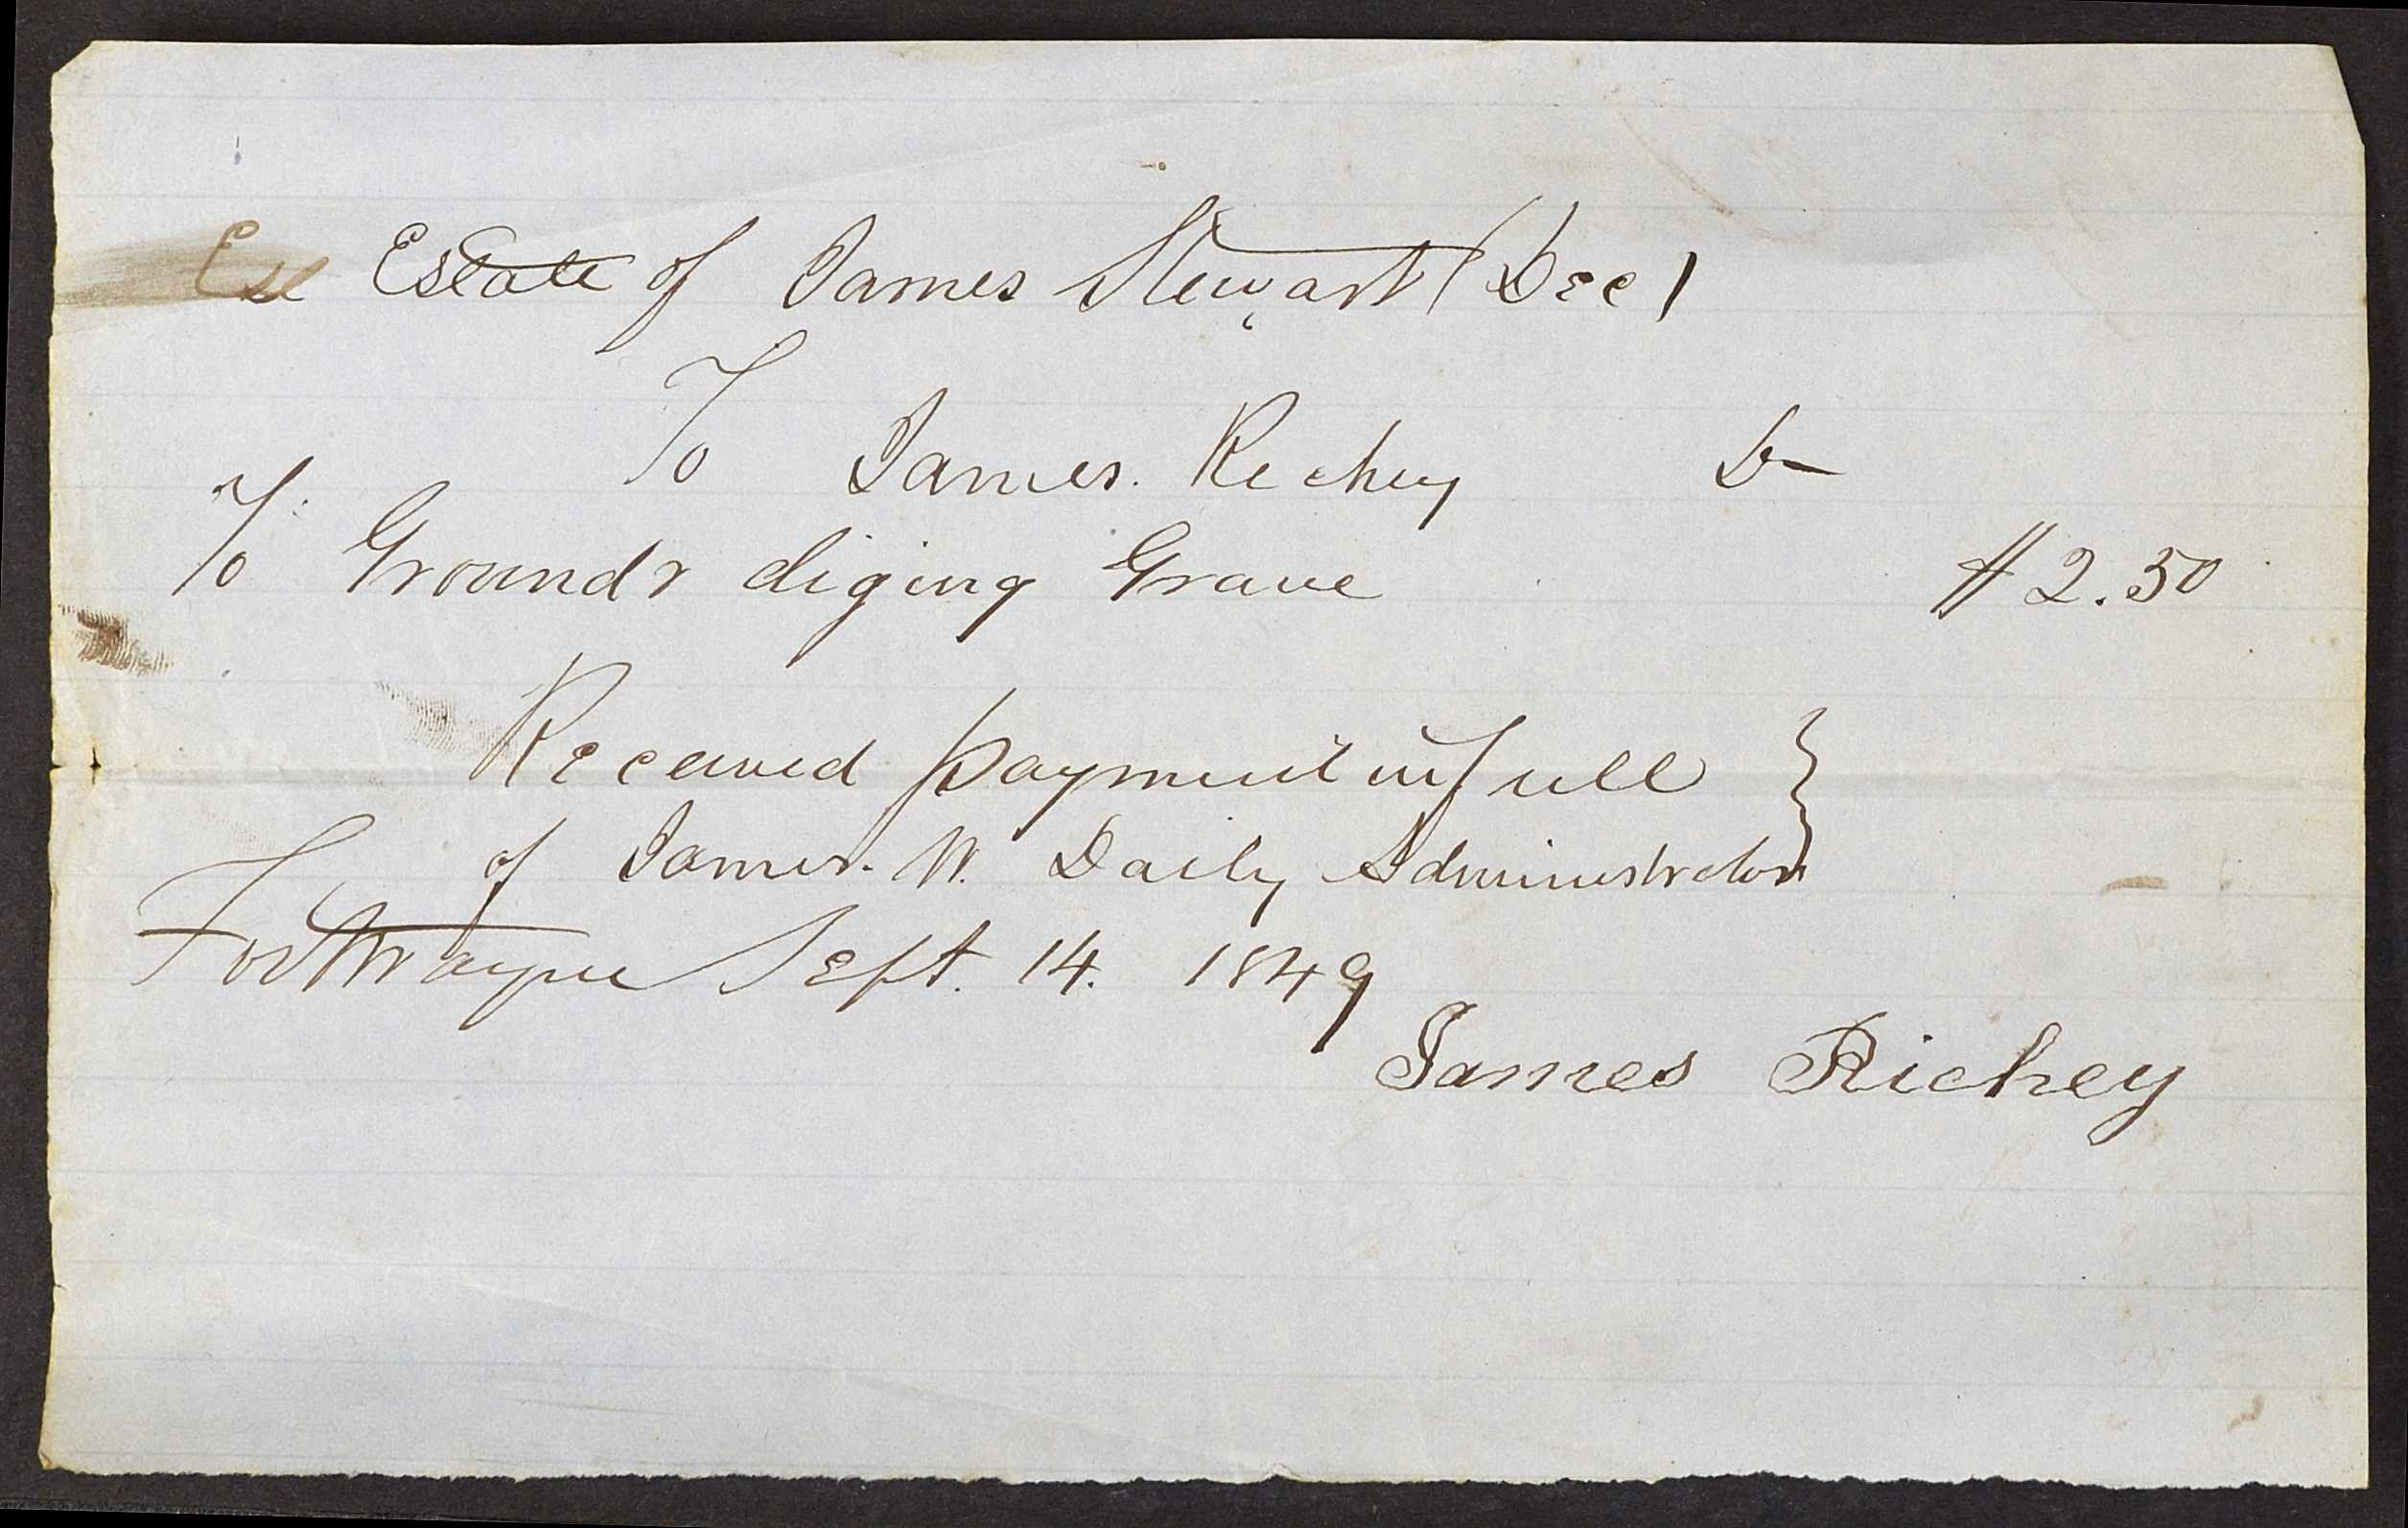 Est Estate of James Stewart (Dec)
To James. Richey Dr
To Ground & diging Grave $2.50
Received payment in full
of James. W. Daily Administrator
Fort Wayne Sept. 14. 1849
James Richey